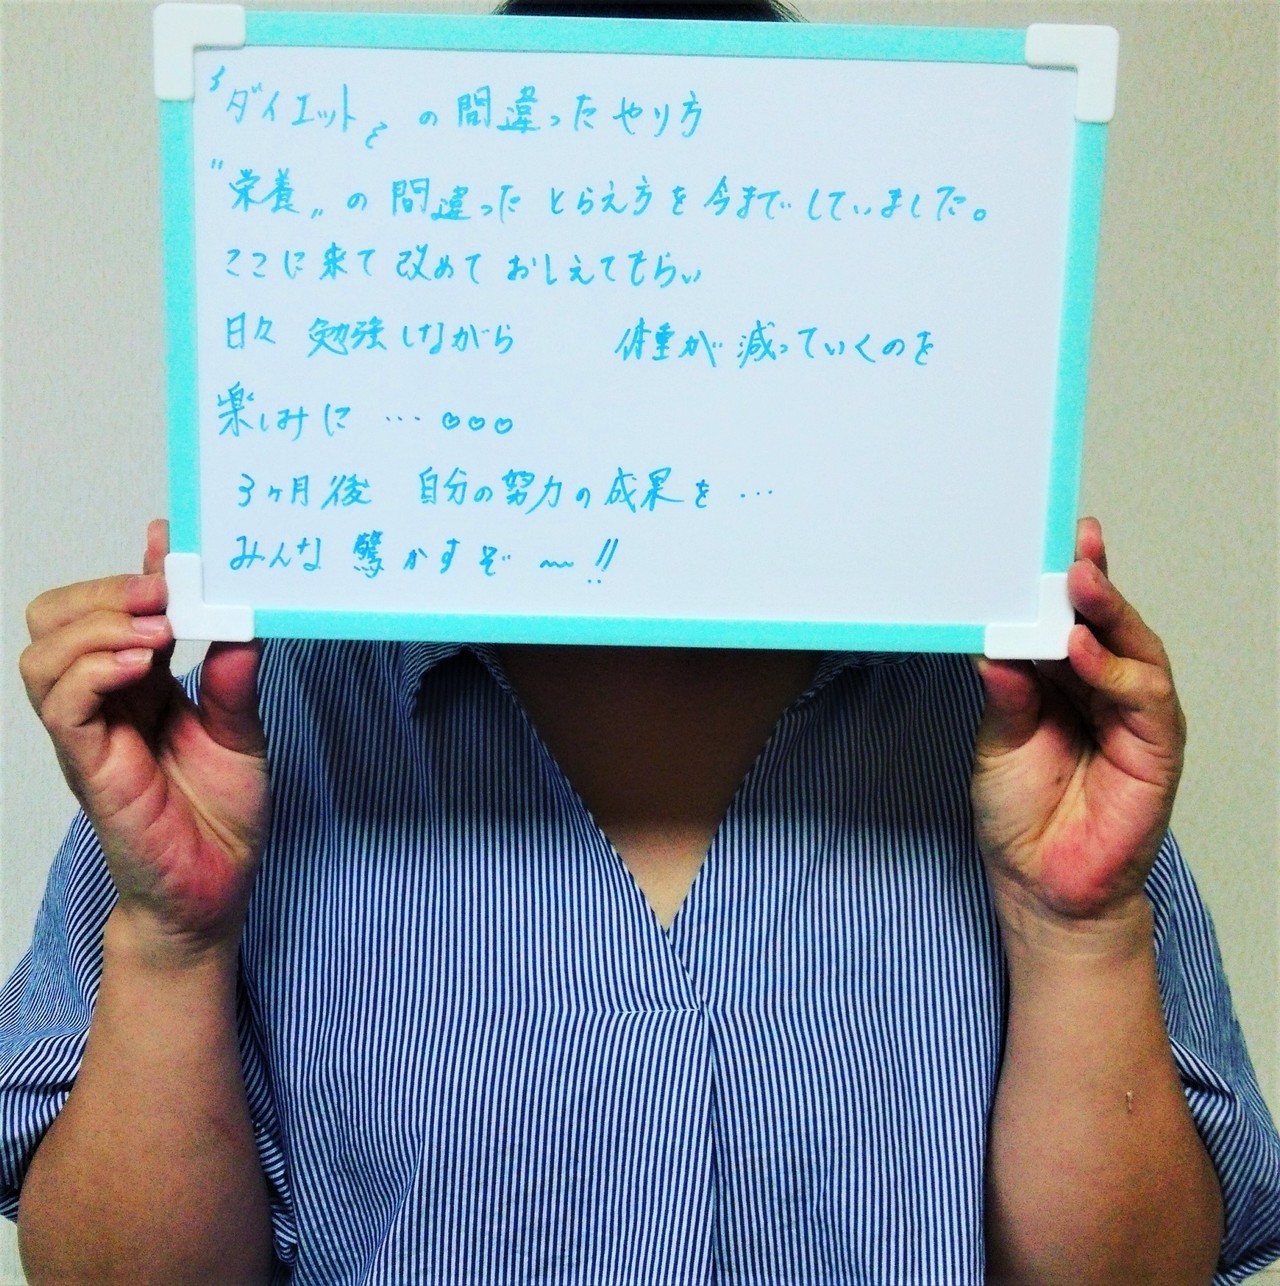 "ダイエット"の間違ったやり方
"栄養"の間違ったとらえ方を今までしていました。
ここに来て改めておしえてもらい
日々 勉強しながら 体重が減っていくのを
楽しみに…♡♡♡
3ヶ月後 自分の努力の成果を…
みんな驚かすぞ〜!!